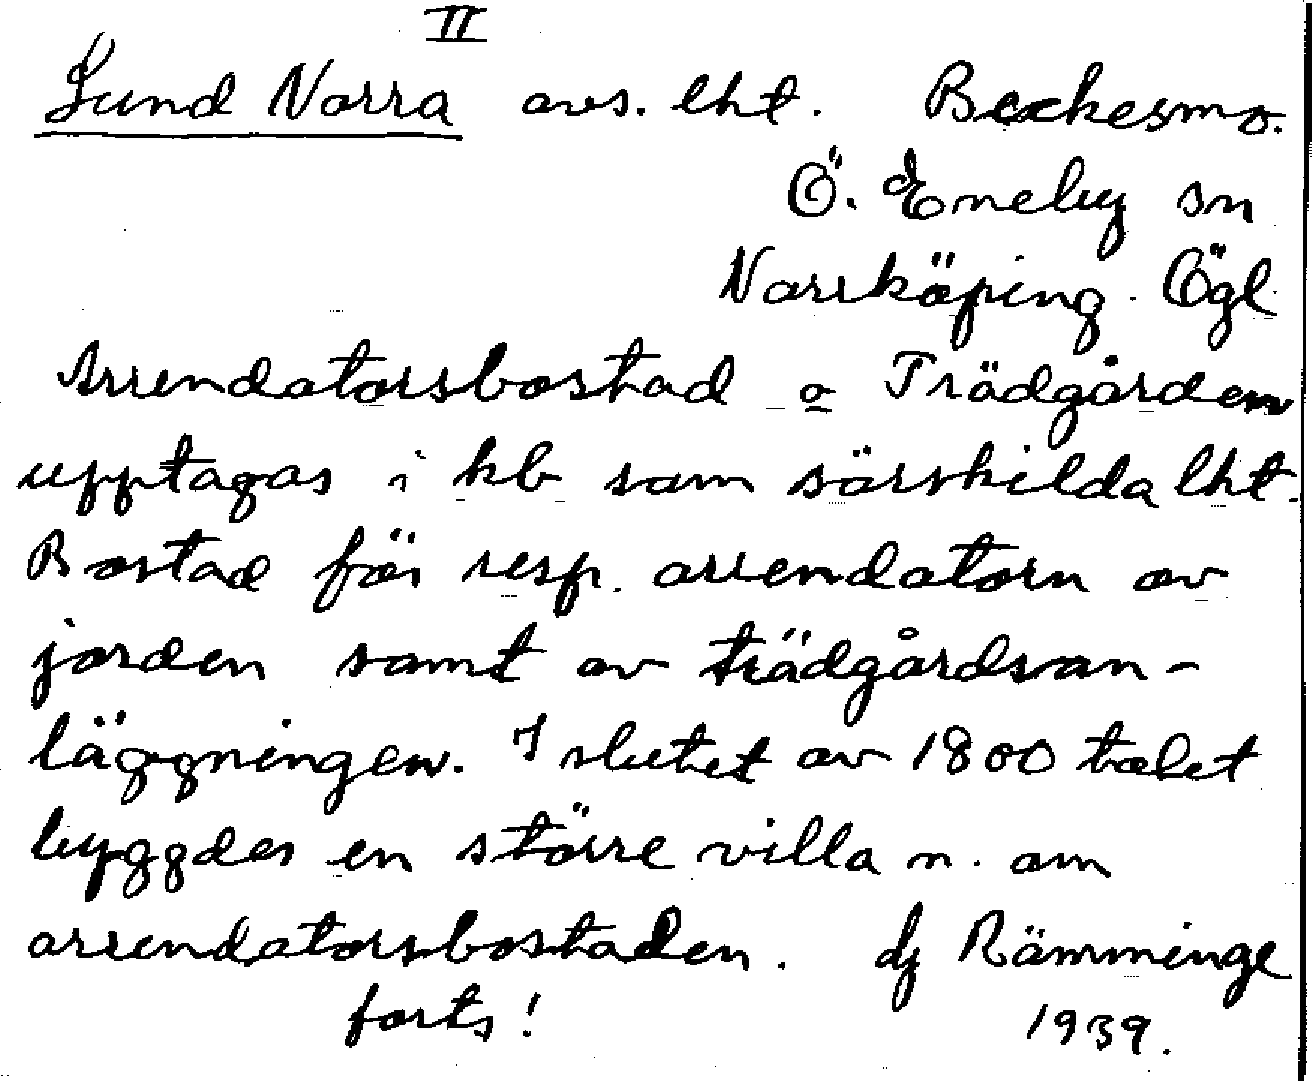 II
Lund Norra avs. lht. Bæckesmo.
Ö. Eneby sn
Norrköping Ögl
Arrendatorsbostad o Trädgården
upptagas i kb som särskilda lht.
Bostad för resp. arrendatorn av
jorden samt av trädgårdsan-
läggningen. I slutet av 1800 talet
byggdes en större villa n. om
arrendatorsbostaden. dj Rämminge
forts! 1939.